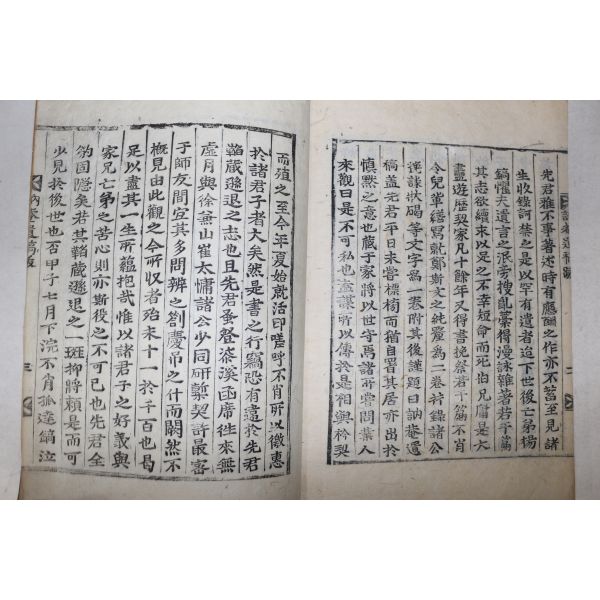 先君雅不事著述時有應酬之作亦不蓄至見諸
生收錄訶禁之是以罕有遺者迨下世後亡弟楊
鎬懼夫遺言之泯旁搜亂藁得漫詠雜著若干篇
其志欲續求以足之不幸短命而死伯兄庸是大
盡遊歷契家凡十餘年又得書挽祭若干篇不肖
令兒輩繕寫就鄭斯文之純釐為二卷幷錄諸公
誄狀碣等文字爲一卷附其後謹題曰訥菴遺
稿盖先君平日未嘗標榜而猶自署其居亦出於
愼黙之意也藏于家將以世守焉諸所嘗問業人
來觀曰是不可私也盍謀所以傳於是相與衿契
而殖之至今年夏始就活印嗟呼不肖所以徼惠
於諸君子者大矣然是書之行竊恐有違於先君
韜藏遜退之志也且先君蚤登溪函席徃來無
虛月與徐無山崔太慵諸公少同研槧契許最密
于師友間宜其多問辨之劄慶吊之什而闕然不
槪見由此觀之今所收者殆未十一於千百也曷
足以盡其一生所蘊抱哉惟以諸君子之好義與
家兄亡弟之苦心則亦斯役之不可已也先君全
豹固隱矣若其韜藏遜退之一斑抑將賴是而可
少見於後世也否甲子七月下浣不肖孤達鎬泣
訥菴遺稿跋
二
訥菴遺稿跋
三